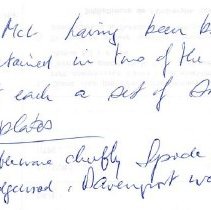 Mct having been b
tained in two of the
t each a set of
plates
bleware chiefly Spode
dgewood, Davenport wa